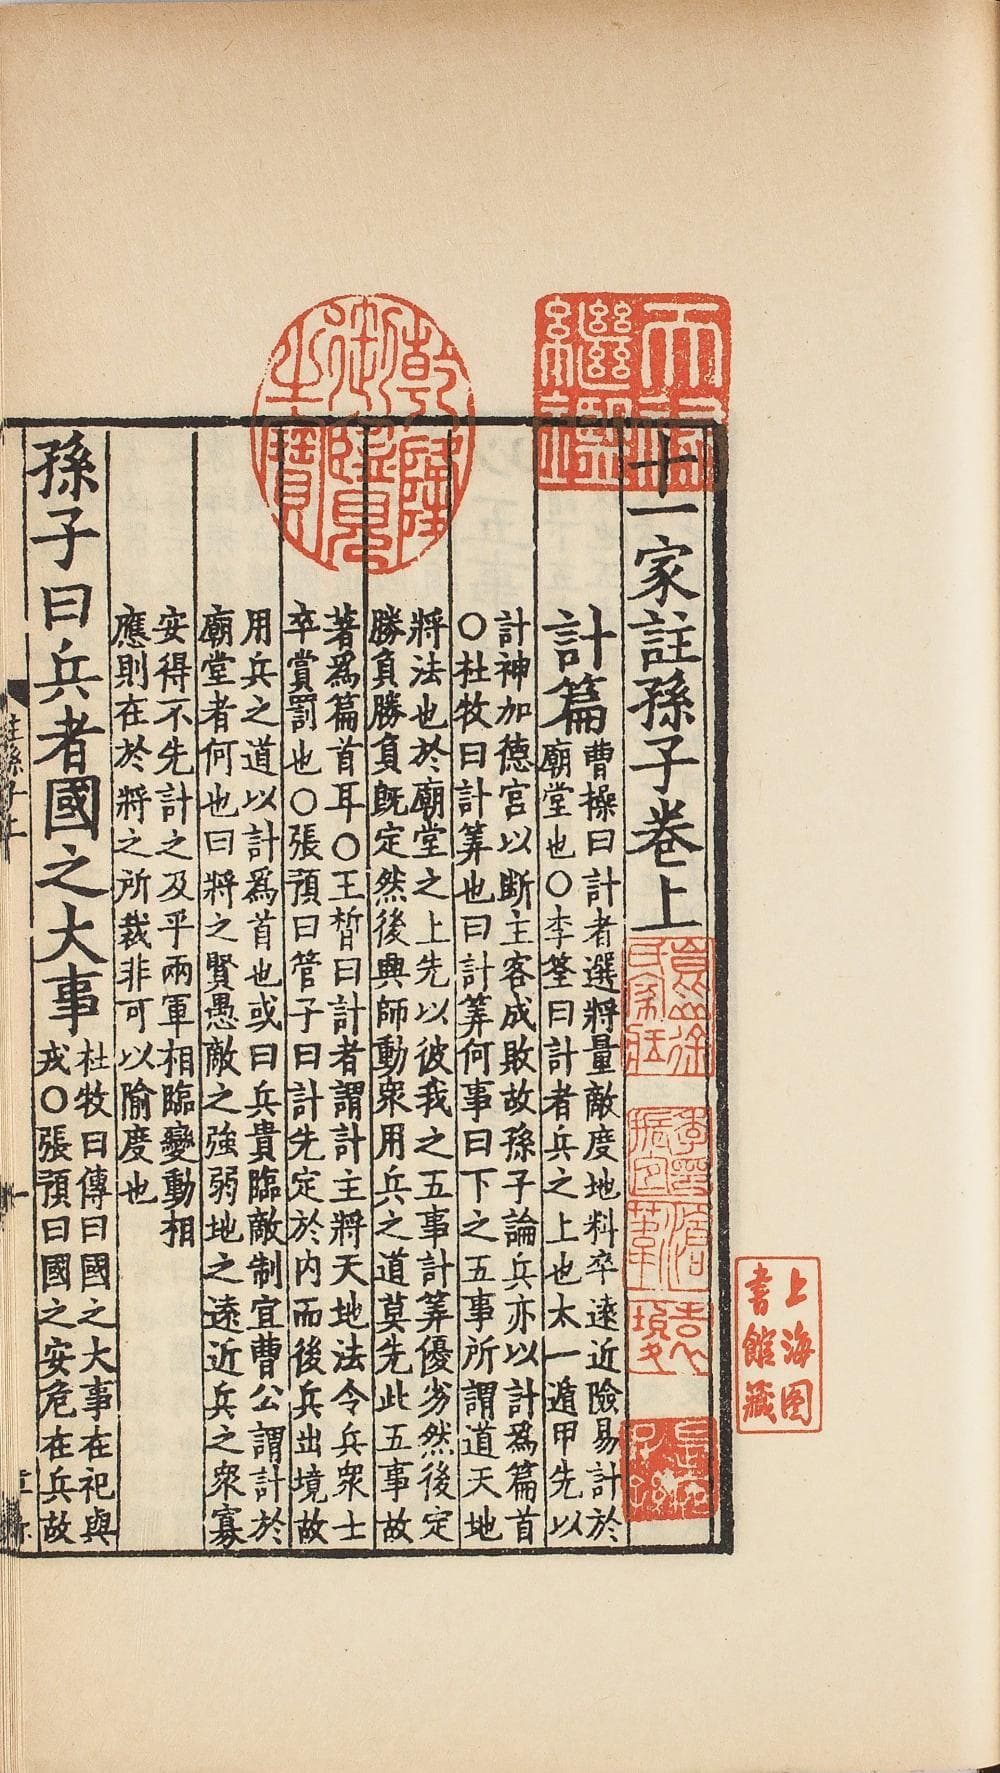 十一家註孫子卷上
計篇
曹操曰計者選將量敵度地料卒遠近險易計於
廟堂也○李筌曰計者兵之上也太一遁甲先以
計神加德宮以斷主客成敗故孫子論兵亦以計爲篇首
○杜牧曰計筭也曰計筭何事曰下之五事所謂道天地
將法也於廟堂之上先以彼我之五事計筭優劣然後定
勝負勝負旣定然後興師動衆用兵之道莫先此五事故
著爲篇首耳○王晳曰計者謂計主將天地法令兵衆士
卒賞罰也○張預曰管子曰計先定於内而後兵出境故
用兵之道以計爲首也或曰兵貴臨敵制宜曹公謂計於
廟堂者何也曰將之賢愚敵之強弱地之遠近兵之衆寡
安得不先計之及乎兩軍相臨變動相
應則在於將之所裁非可以隃度也
孫子曰兵者國之大事
杜牧曰傳曰國之大事在祀與
戎○張預曰國之安危在兵故
天祿
繼鑑
乾隆
御覽
之寶
上海图
書館藏